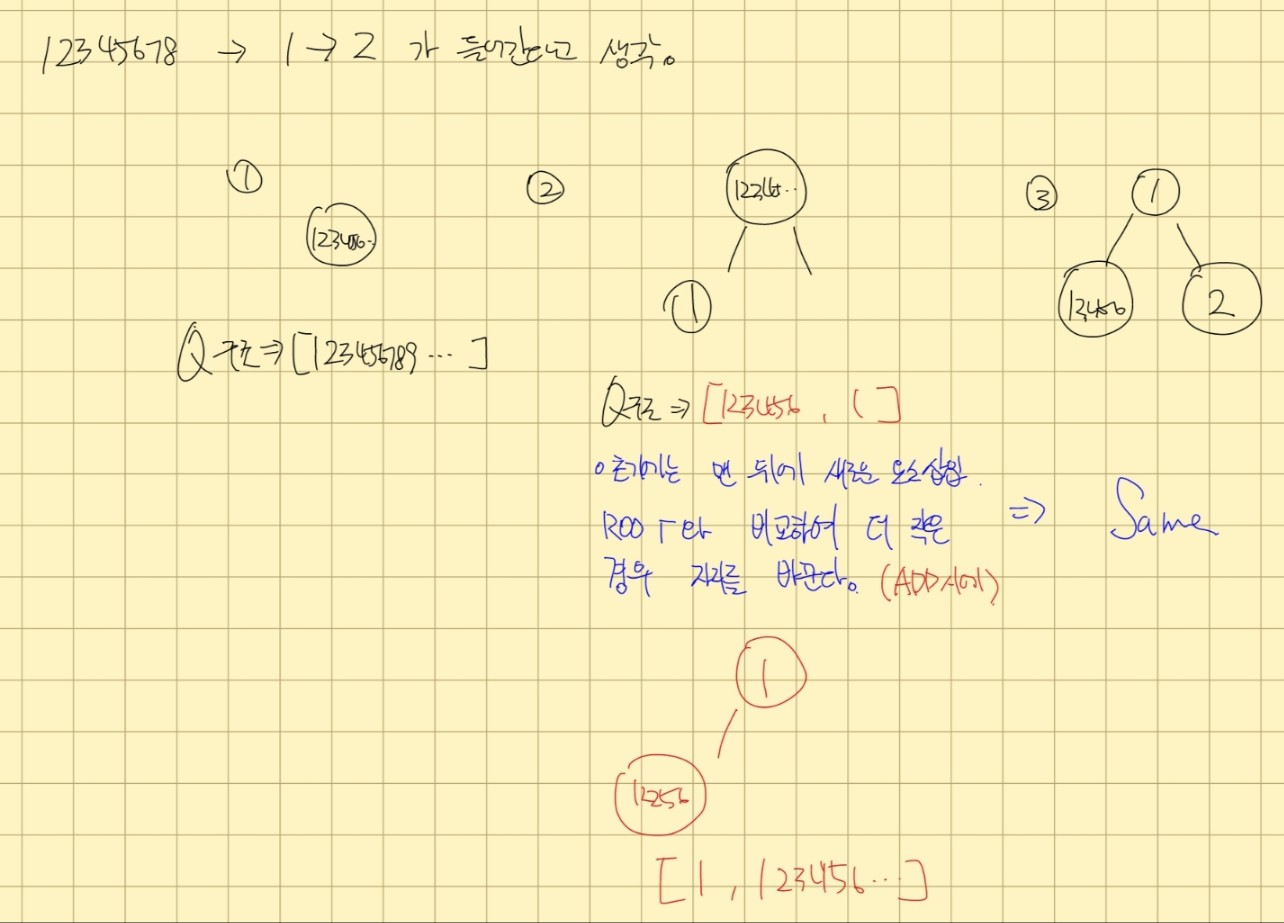 12345678 → 1 → 2 가 들어간다고 생각。
① ② ③
123456‥
12345‥
1
1
123456
2
Q구조⇒[123456789 …]
Q구조 ⇒ [123456 , 1 ]
○ 초기에는 맨 뒤에 새로운 요소삽입.
ROOT와 비교하여 더 작은
경우 자리를 바꾼다。 (ADD시에)
⇒ Same
1
[ 1 , 123456… ]